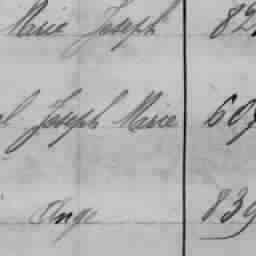 Marie Joseph 82
Joseph Marie 609
Ange 839